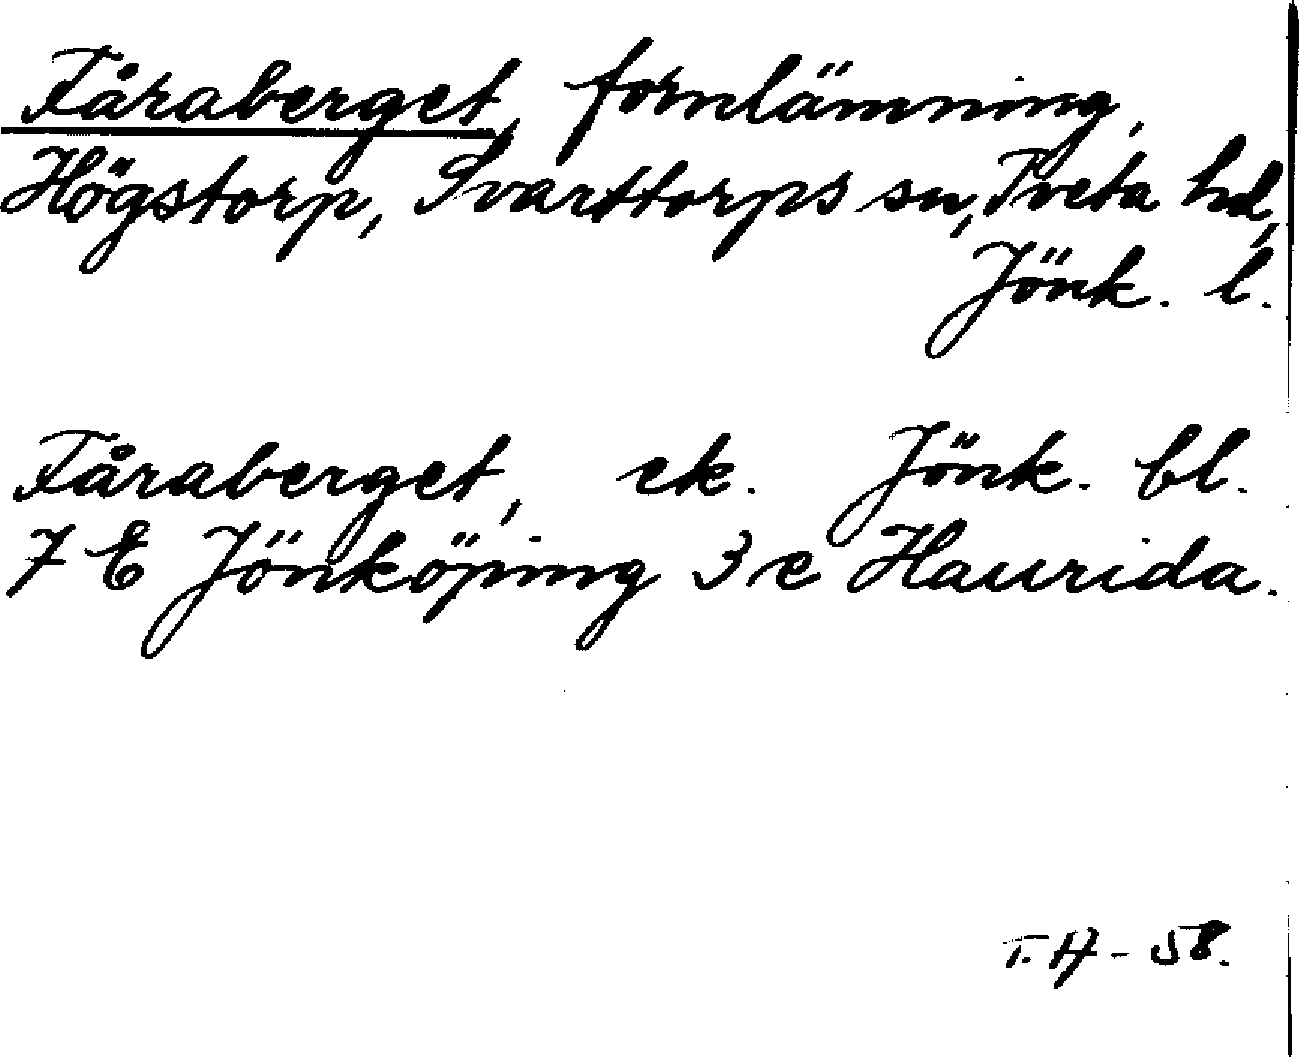 Fåraberget, fornlämning,
Högstorp, Svarttorps sn, Tveta hd,
Jönk. l.
Fåraberget, ek. Jönk. bl.
7 E Jönköping 3 e Haurida.
T.H - 58.